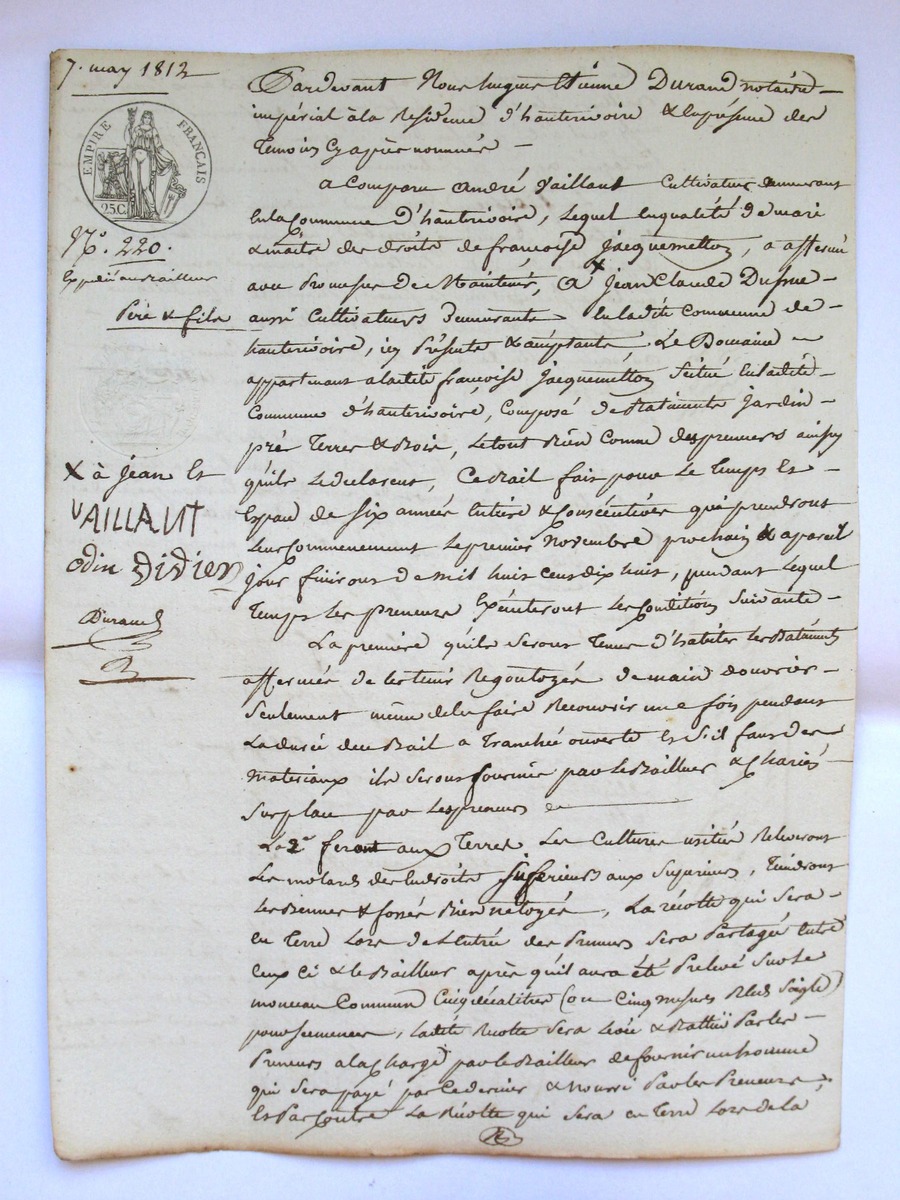 7. may 1812
EMPIRE FRANÇAIS
25.C.
N°. 220.
Expedié au Bailleur
Père & fils
X à jean Et
VAILLANT
odin didier
Durand
Pardevant Nous hugues Etienne Durand notaire
impérial à la Residence d'hauterivoire & En présence des
Temoins Cy après nommés
a Comparu André Vaillant Cultivateur demeurant
En la Commune D'hauterivoire, Lequel En qualité de mari
& maitre des droits de francoise Jacquemetton, a affermé
avec Promesse De Maintenir, à X Jean Claude Dufour
aussi Cultivateurs Demeurants En ladite Commune de
hauterivoire, icy Présents & acceptants Le Domaine
appartenant a ladite francoise Jacquemetton Scitué En ladite
Commune d'hauterivoire, Composé de Batiments Jardin
prés Terres & Bois, Le tout Bien Connu des preneurs ainsy
qu'ils Le declarent, Ce Bail fait pour Le Temps Et
Espace de Six années Entière & Consécutives qui prendront
Leur Commencement Le premier Novembre prochain & a pareil
jour finiront de mil huit cent dix huit, pendant Lequel
Temps Les preneurs Exécuteront Les Conditions Suivante
La première qu'ils Seront Tenus d'habiter Les Batiments
affermés de les tenir Regoutoyés de main douvrier
Seulement même de les faire Recouvrir une fois pendant
La durée du Bail a Tranchée ouverte Et S'il faut des
materiaux ils Seront fournis par Le Bailleur & Chariés
Sur place par Les preneurs
La 2e feront aux Terres Les Cultures usitées Releveront
Les molards des Endroits inferieurs aux Superieurs, Tiendront
Les Bennes & fossés Bien netoyés, La récolte qui Sera
En Terre Lors de L'entrée des Preneurs Sera Partagée Entre
Ceux Ci & Le Bailleur après qu'il aura été Prelevé Sur Le
monceau Commun Cinq décalitres (ou Cinq mesures Bled Seigle)
pour Semences, Ladite Récolte Sera Levée & Battüe Par Les
Preneurs a la Charge par Le Bailleur de fournir un homme
qui Sera payé par Ce dernier & nourri Par Les Preneurs,
Et Par Contre La Récolte qui Sera en Terre Lors de La